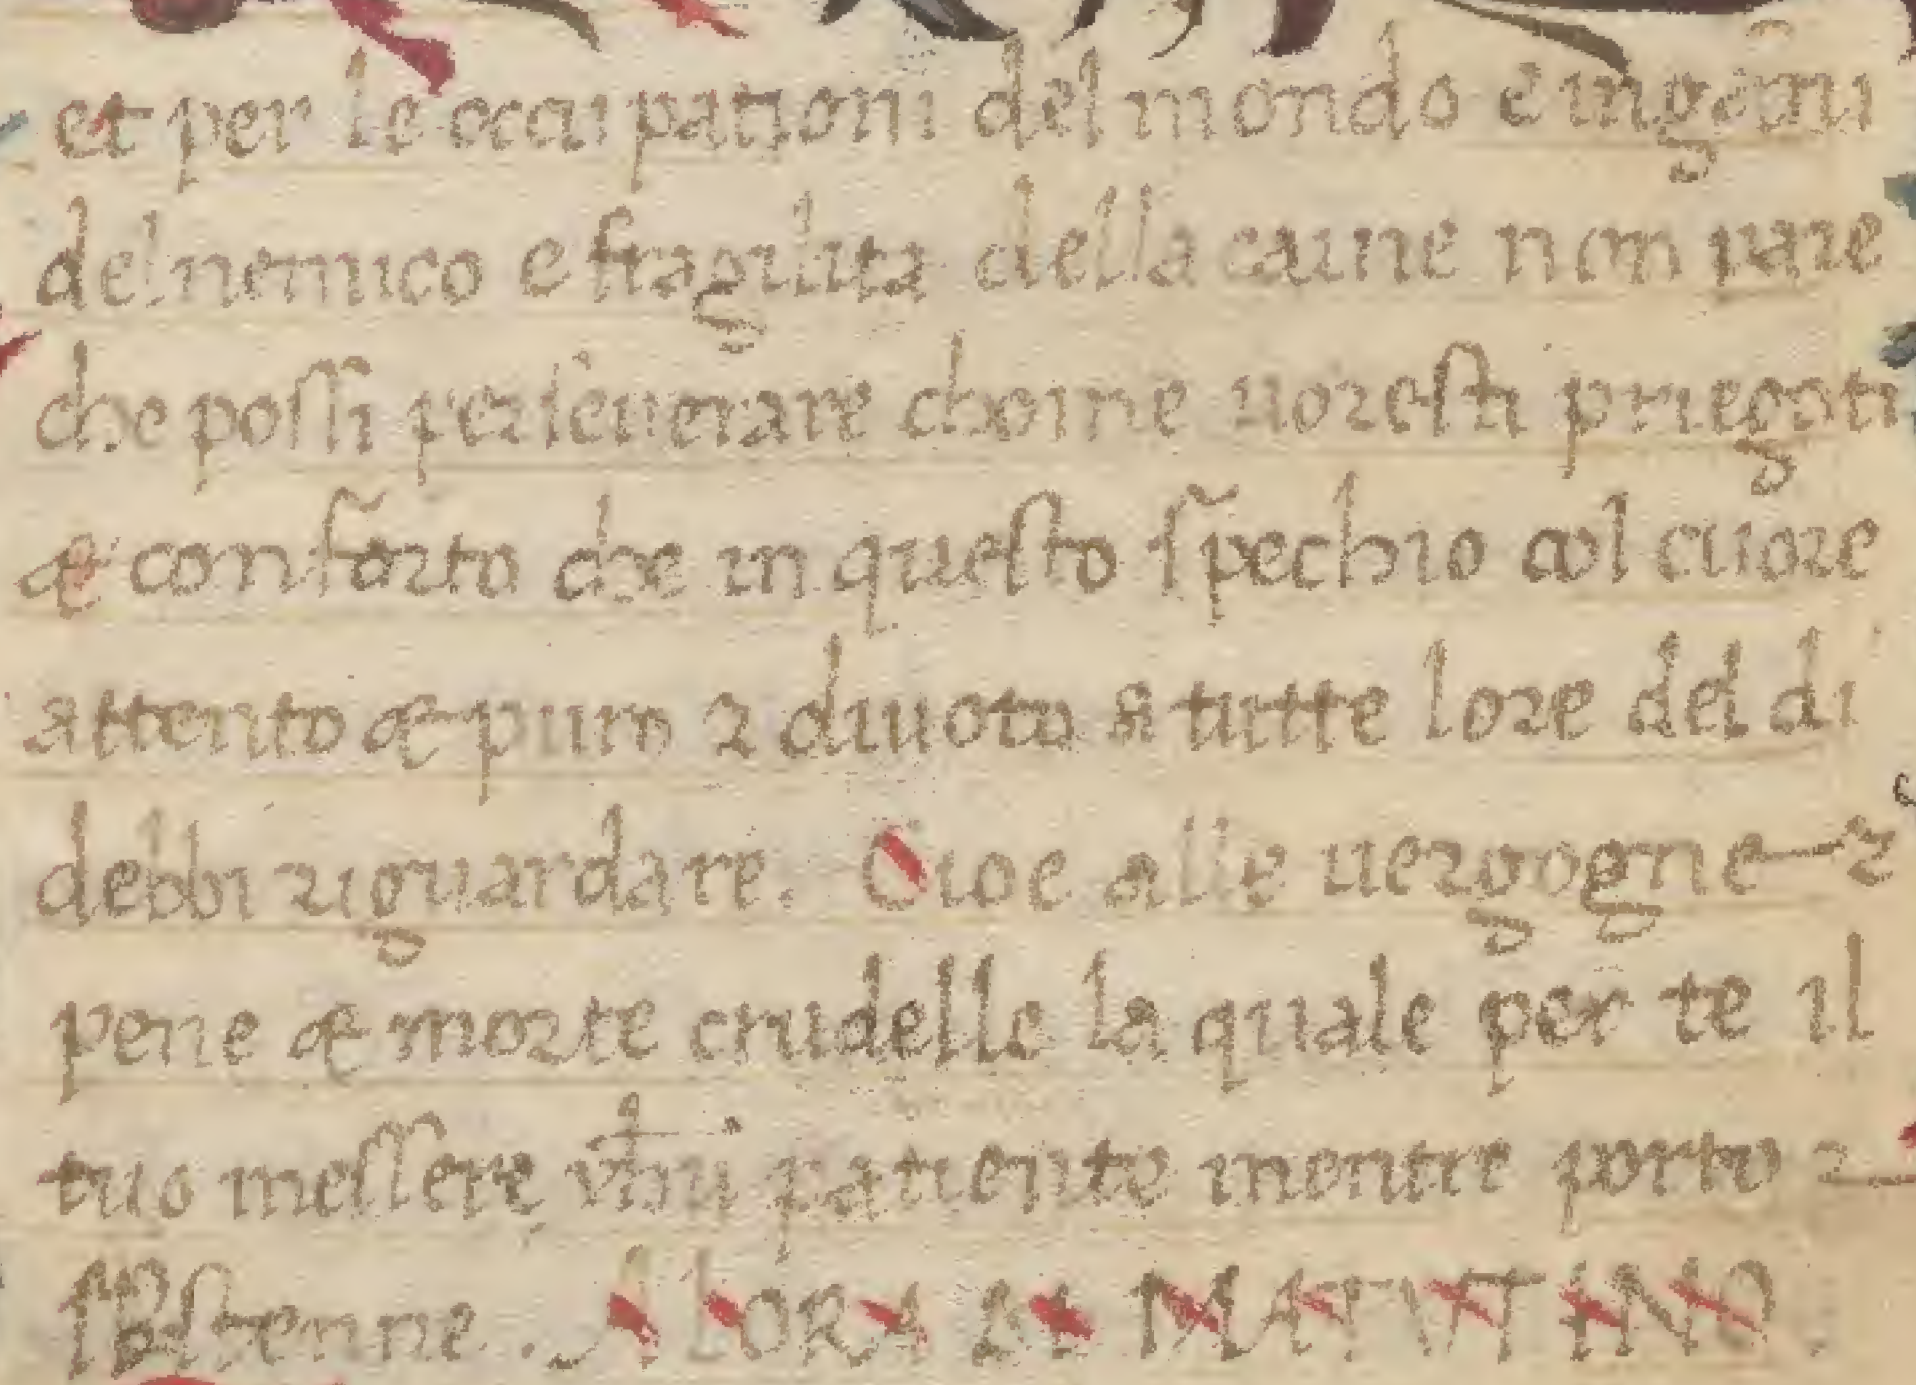 et per le occupationi del mondo e inganni
del nemico e fragilita della carne non pare
che possi perseuerare chome uoresti priegoti
& conforto che in questo spechio col cuore
attento & puro & diuoto a tutte lore del di
debbi riguardare. Cioe alle uergogne &
pene & morte crudelle la quale per te il
tuo messere patiente mentre porto &
sostenne. A LORA DI MATVTINO.